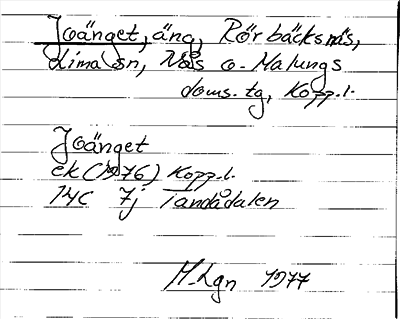 Joänget, äng, Rörbäcksnäs,
Lima sn, Nås o. Malungs
doms. tg, Kopp. l.
Joänget
ek (1976) Kopp. l.
14C 7j Tandådalen
M. Lgn 1977